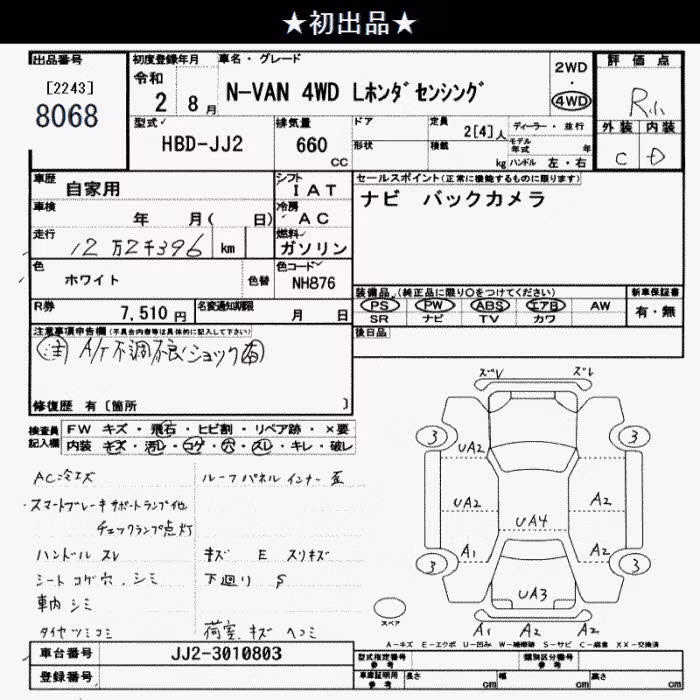 ★初出品★
出品番号
[2243]
8068
初度登録年月
令和
2 8月
車名・グレード
N-VAN 4WD Lホンダセンシング
2WD
・
4WD
評価点
R小
外装 内装
C D
型式
HBD-JJ2
排気量
660
CC
ドア
形状
定員
2[4]人
積載
kg
ディーラー・並行
モデル年式 年
ハンドル 左・右
車歴
自家用
シフト
IAT
セールスポイント(正常に機能するものに限ります)
ナビ バックカメラ
車検
年 月( 日)
冷房
AC
走行
12万2千396 km
燃料
ガソリン
色
ホワイト
色替
色コード
NH876
装備品(純正品に限り○をつけてください)
PS PW ABS エアB AW
SR ナビ TV カワ
新車保証書
有・無
R券
7,510円
名変通知期限
月 日
後日品
注意事項申告欄(不具合内容等は具体的に記入して下さい)
注 A/T不調不良(ショック有)
修復歴 有〔箇所 〕
検査員記入欄
FW キズ・飛石・ヒビ割・リペア跡・×要
内装 キズ・汚レ・コゲ・穴・スレ・キレ・破レ
AC冷エズ
ルーフパネルインナー歪
・スマートブレーキサポートランプ他
チェックランプ点灯
ハンドル スレ
キズ E スリキズ
シート コゲ穴、シミ
下廻り S
車内 シミ
タイヤツミコミ
荷室 キズ ヘコミ
ズレ ズレ
3 3
UA2
UA2 A2
UA4
A1 A2
3 3
UA3
スペア
A1 A2 A2
A-キズ E-エクボ U-凹み W-補修跡 S-サビ C-腐食 XX-交換済
車台番号
JJ2-3010803
登録番号
型式指定番号
参考
類別区分番号
参考
車庫証明用
参考
長さ cm
幅 cm
高さ cm